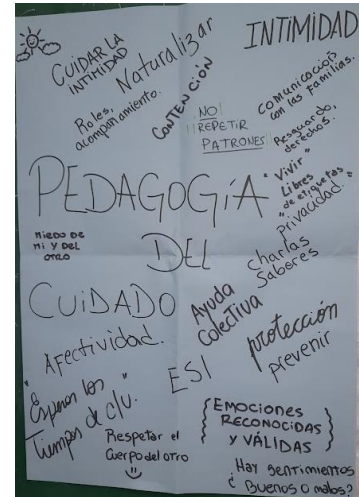 CUIDAR LA
INTIMIDAD
Naturalizar
INTIMIDAD
Roles,
acompañamiento.
CONTENCIÓN
NO!
!!REPETIR
PATRONES!!
COMUNICACIÓN
con las Familias.
Resguardo,
derechos.
PEDAGOGÍA
"Vivir
Libres
de etiquetas"
privacidad.
MIEDO DE
MI Y DEL
OTRO
DEL
Charlas
Saberes
CUIDADO
Ayuda
Colectiva
AFectividad.
protección
prevenir
ESI
"Esperar los
Tiempos de c/u."
Respetar el
Cuerpo del otro
EMOCIONES
RECONOCIDAS
Y VÁLIDAS
Hay sentimientos
¿ Buenos o malos?